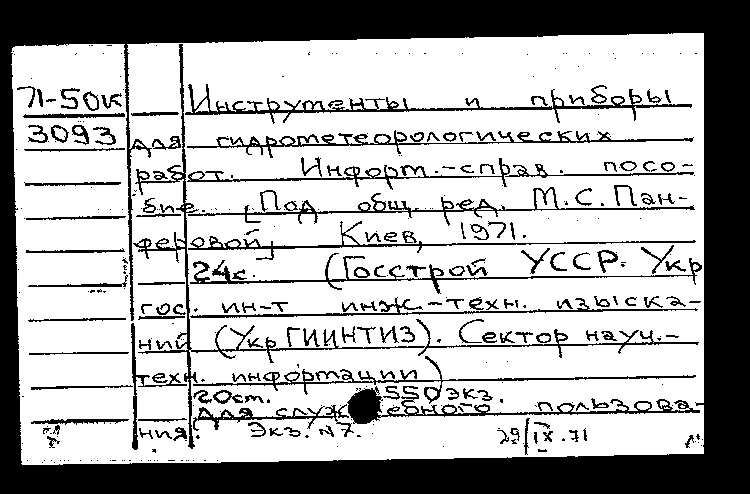 71-50к Инструменты и приборы
3093 для гидрометеорологических
работ. Информ.-справ. посо-
бие. [Под общ. ред. М.С. Пан-
феровой] Киев, 1971.
24с. (Госстрой УССР. Укр
гос. ин-т инж.-техн. изыска-
ний (УкрГИИНТИЗ). Сектор науч.-
техн. информации)
20см. 550 экз.
Для служебного пользова-
ния. Экз. №7. 29/IX.71